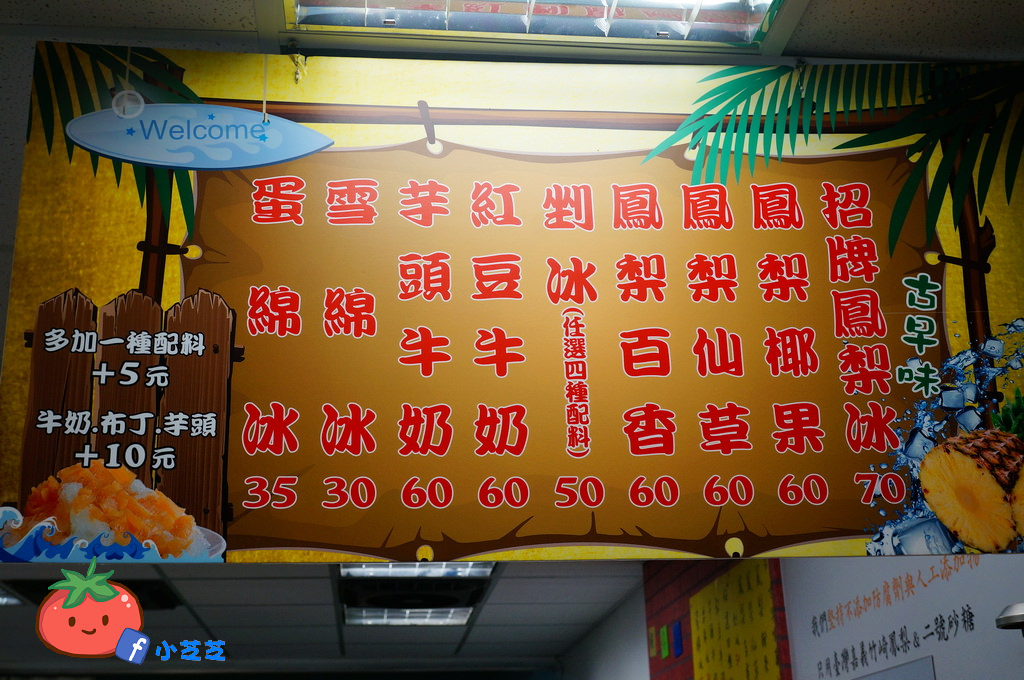 Welcome
古早味
招牌鳳梨冰 70
鳳梨椰果 60
鳳梨仙草 60
鳳梨百香 60
剉冰(任選四種配料) 50
紅豆牛奶 60
芋頭牛奶 60
雪綿冰 30
蛋綿冰 35
多加一種配料
+5元
牛奶.布丁.芋頭
+10元
我們堅持不添加防腐劑與人工添加物
只用臺灣嘉義竹崎鳳梨 & 二號砂糖
f 小芝芝